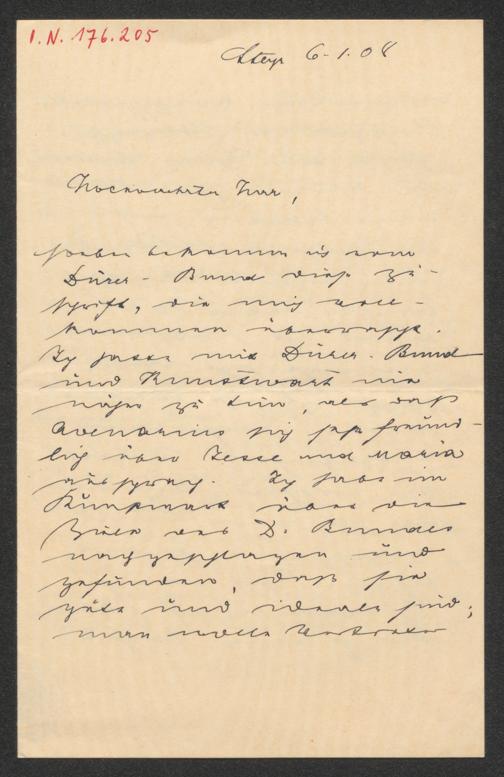 I.N. 176.205
Steyr 6.1.08
Hochverehrter Herr,
soeben bekomme ich vom
Dürer-Bund diese Zu-
schrift, die mich voll-
kommen überrascht.
Ich hatte mit Dürer-Bund
und Kunstwart nie
näher zu tun, als daß
Avenarius sich sehr freund-
lich über Jesse und Maria
aussprach. Ich habe im
Kunstwart über die
Ziele des D. Bundes
nachgeschlagen und
gefunden, daß sie
gute und ideale sind;
man wolle Vertreter